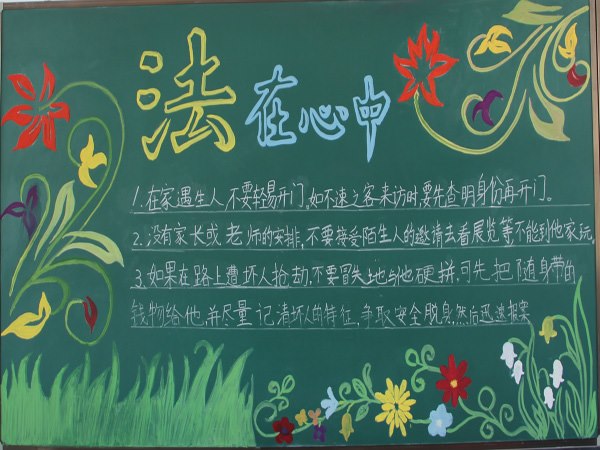 法在心中
1.在家遇生人,不要轻易开门,如不速之客来访时要先查明身份再开门。
2.没有家长或老师的安排,不要接受陌生人的邀请去看展览等不能到他家玩.
3.如果在路上遭坏人抢劫,不要冒失地与他硬拼,可先把随身带的
钱物给他,并尽量记清坏人的特征,争取安全脱身,然后迅速报案